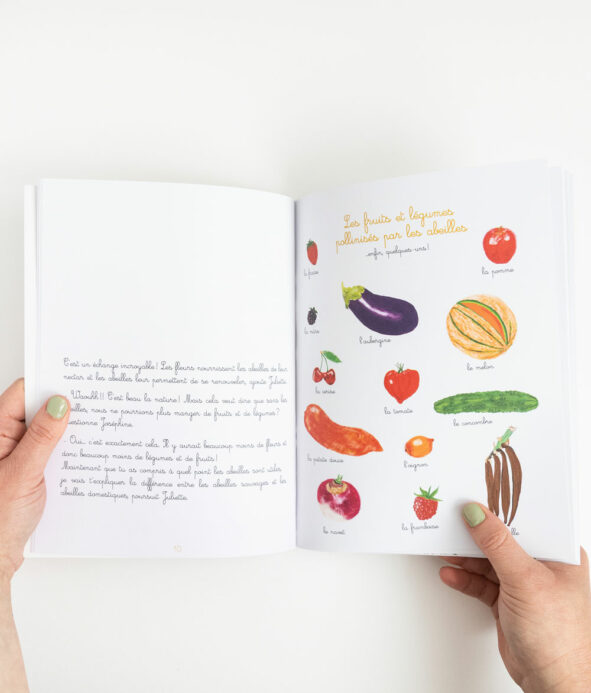 C'est un échange incroyable ! Les fleurs nourrissent les abeilles de leur
nectar et les abeilles leur permettent de se renouveler, ajoute Juliette.
Waouhh !! C'est beau la nature ! Mais cela veut dire que sans les
abeilles, nous ne pourrions plus manger de fruits et de légumes ?
questionne Joséphine.
- Oui... c'est exactement cela. Il y aurait beaucoup moins de fleurs et
donc beaucoup moins de légumes et de fruits !
Maintenant que tu as compris à quel point les abeilles sont utiles
je vais t'expliquer la différence entre les abeilles sauvages et les
abeilles domestiques, poursuit Juliette.
10
Les fruits et légumes
pollinisés par les abeilles
...enfin, quelques-uns !
la fraise
la pomme
la mûre
l'aubergine
le melon
la cerise
la tomate
le concombre
la patate douce
l'oignon
le navet
la framboise